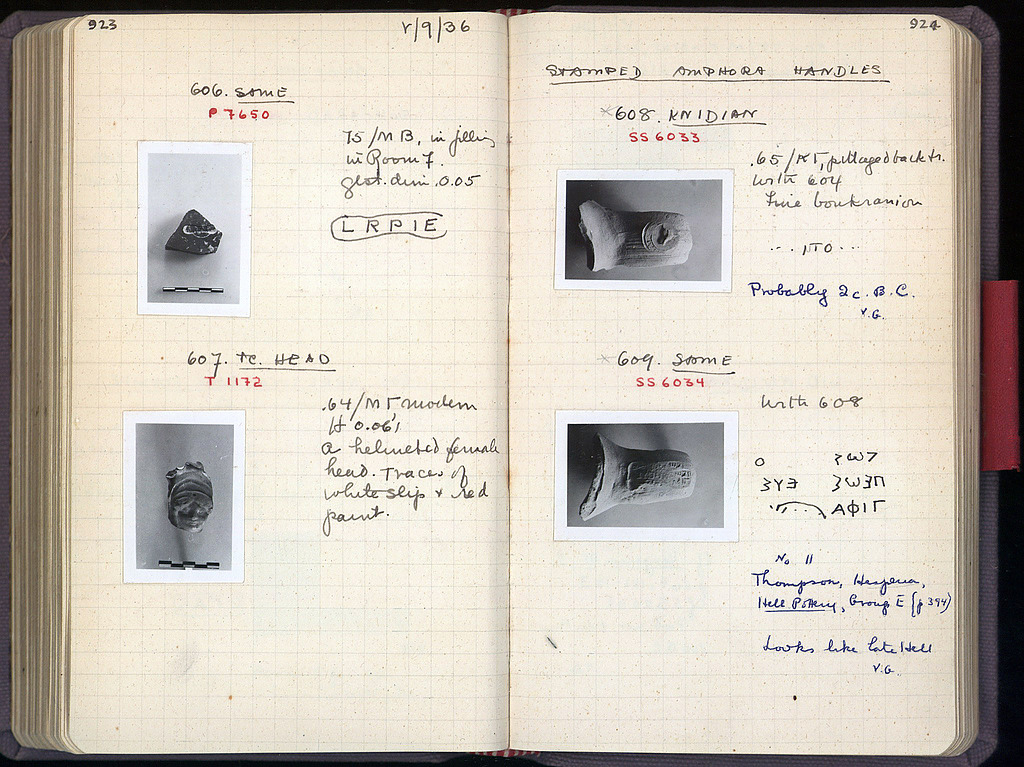 923
V/9/36
606. SAME
P 7650
75/MB, in filling
in Room 7.
gest. dim. 0.05
LRPIE
607. TC. HEAD
T 1172
.64/ΜΓ modern
H 0.061
a helmeted female
head. Traces of
white slip & red
paint.
924
STAMPED AMPHORA HANDLES
608. KNIDIAN
SS 6033
.65/ΚΓ, pillaged backtr.
With 604
Fine boukranion
... ΝΤΟ ...
Probably 2c. B.C.
V.G.
609. SAME
SS 6034
With 608
No 11
Thompson, Hesperia,
Hell Pottery, Group E (p 394)
Looks like late Hell
V.G.